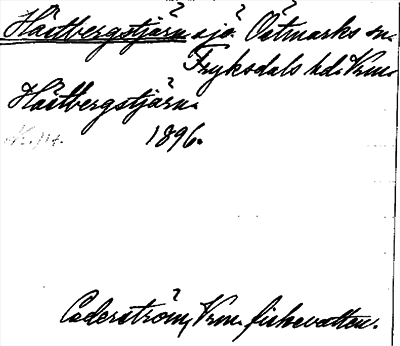 Håltbergstjärn sjö Östmarks sn.
Fryksdals hd. Vrm.
Håltbergstjärn.
1896.
Cederström, Vrm. fiskevatten.